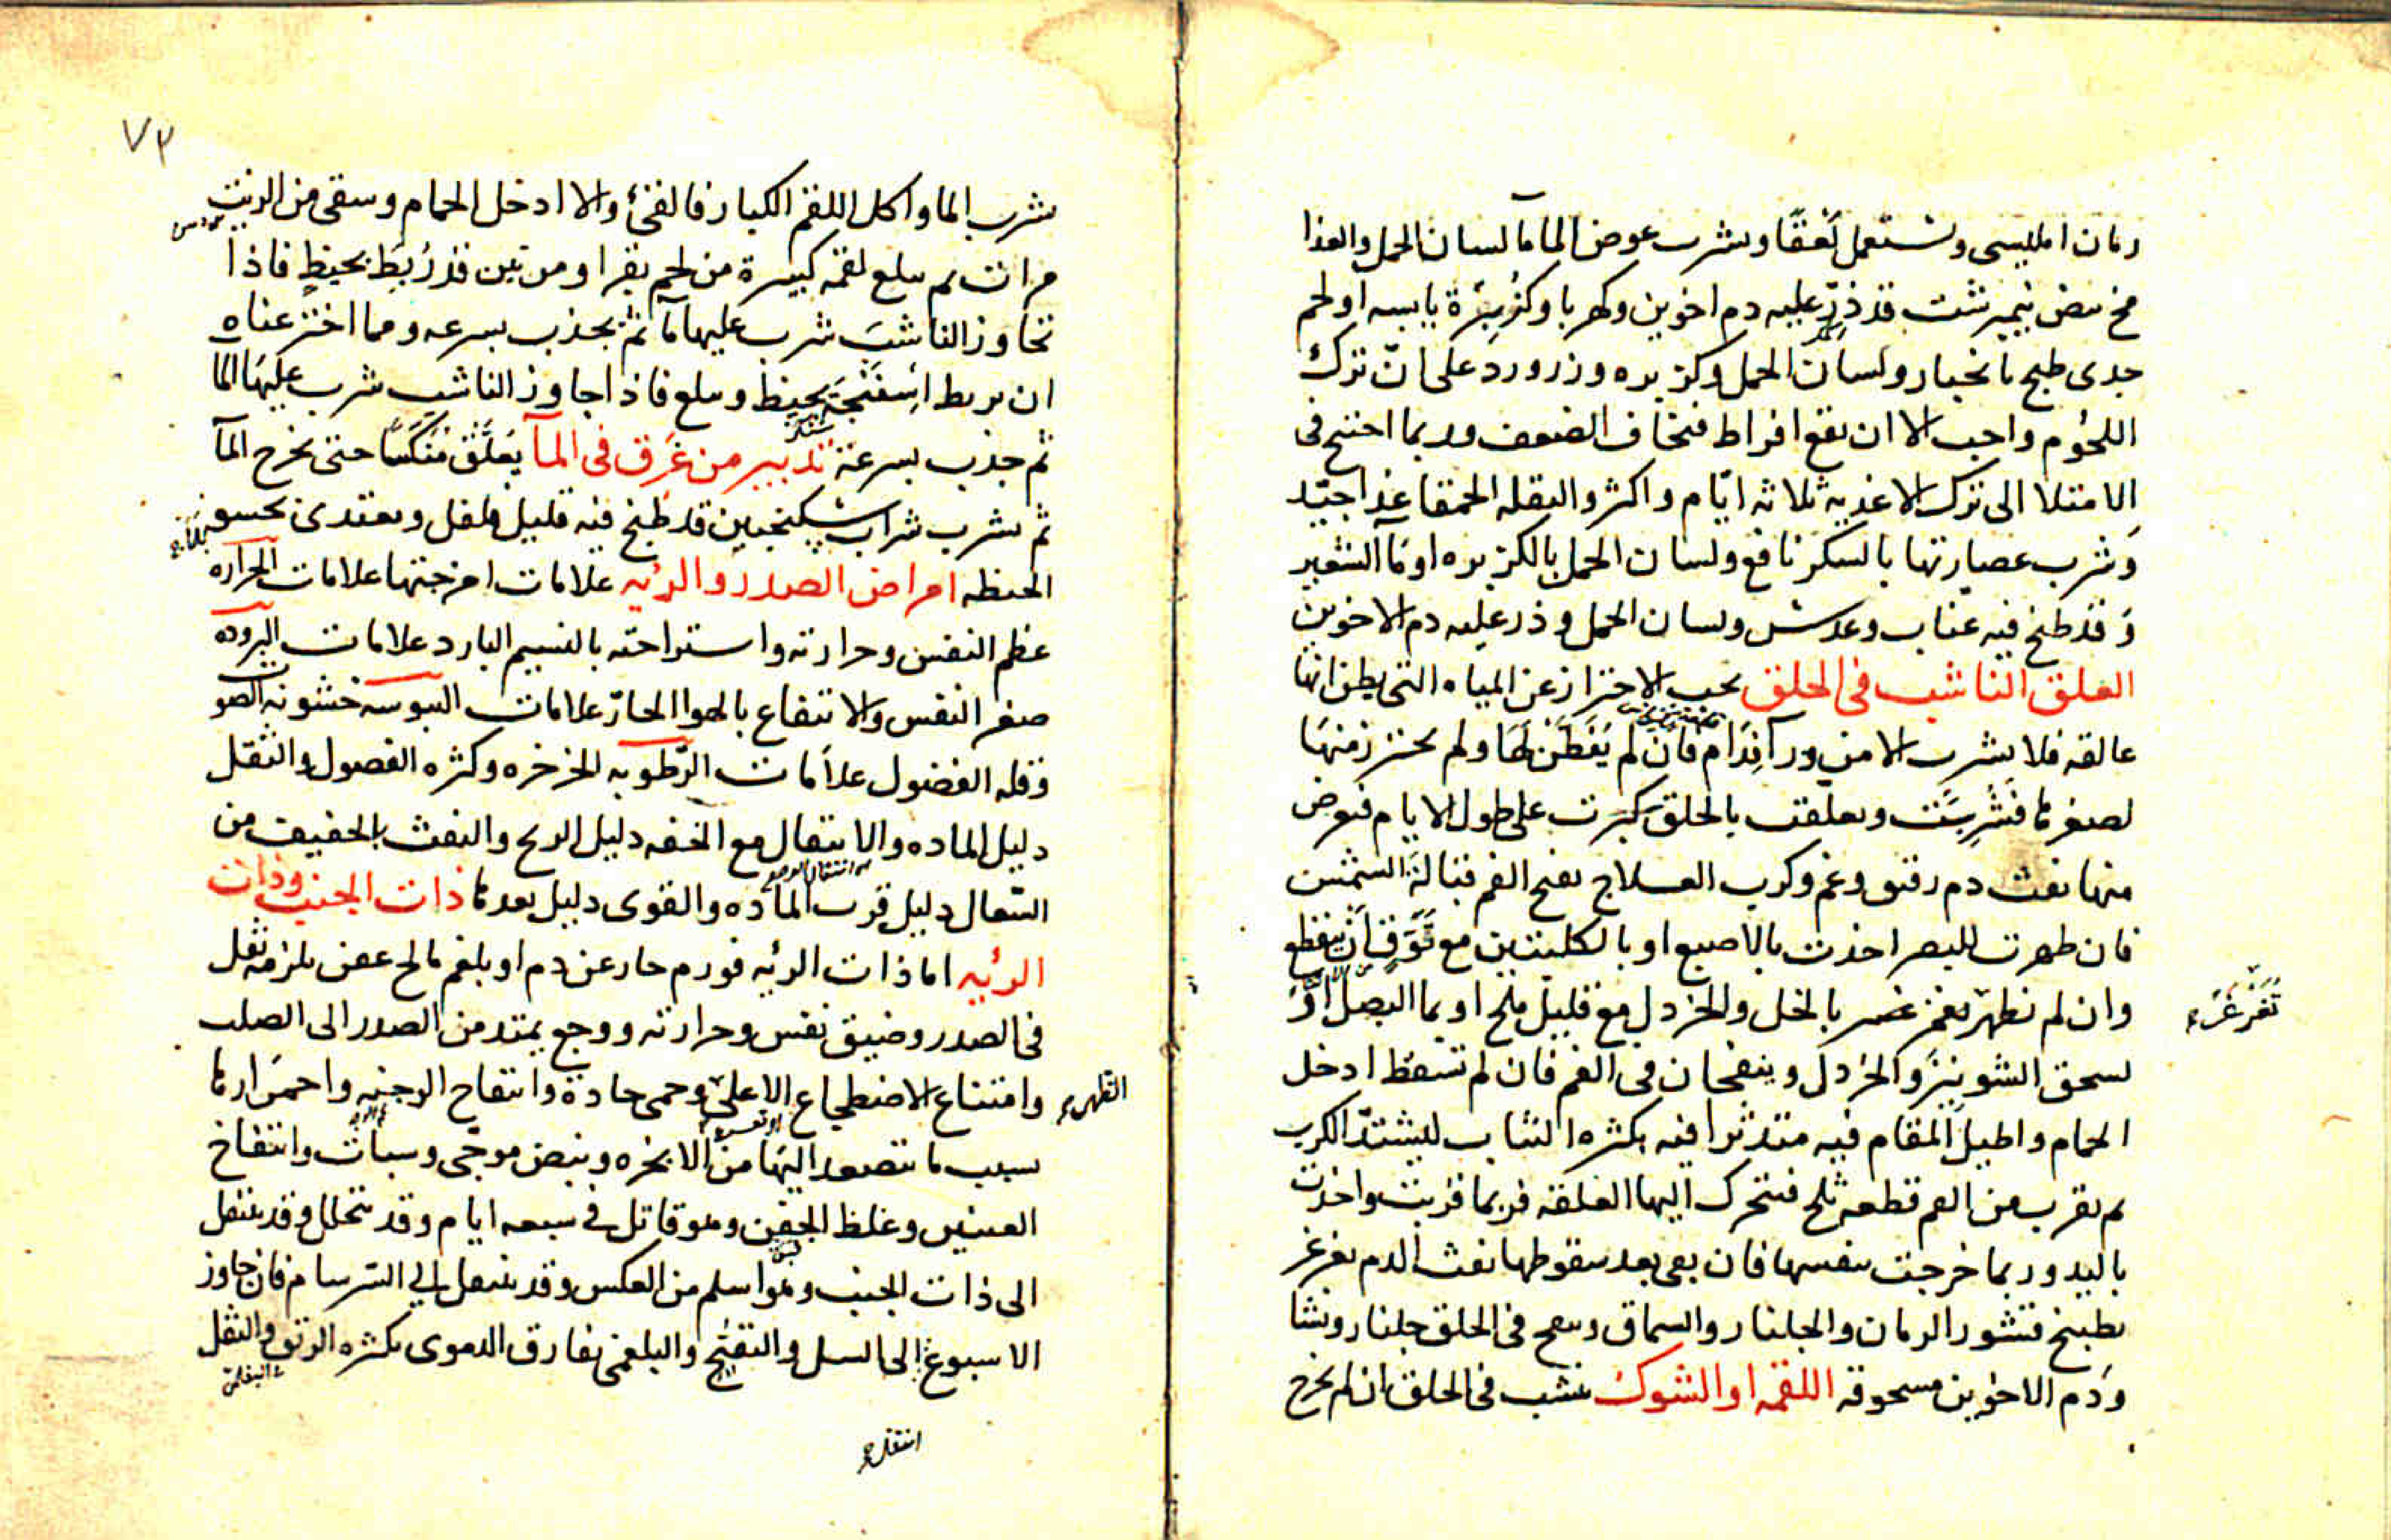 رمان امليسى وتستعمل لعقًا ويشرب عوض الماء ماء لسان الحمل والغذا
مح بيض نيمبرشت قد ذرّ عليه دم اخوين وكهربا وكزبرة يابسه او لحم
جدى طبخ بانخبار ولسان الحمل وكزبره وزرورد على انّ ترك
اللحوم واجب الا ان يقع افراط فيخاف الضعف وربما احتيج فى
الامتلا الى ترك الاغذيه ثلاثه ايّام واكثر والبقله الحمقا غذا جيّد
وشرب عصارتها بالسكر نافع ولسان الحمل بالكزبره او ماَ الشعير
وَقد طبخ فيه عناب وعدس ولسان الحمل وذر عليه دم الاخوين
العلق الناشب فى الحلق يجب الاحتراز عن المياه التى يظن انها
عالقه فلا يشرب الا من ورآ فدام فان لم يَفطَن لهَا ولم يحترز منهَا
لصغرها فشُرِبَت وتعلقت بالحلق كبرت على طول الايام فعرض
منها نفث دم رقيق وغم وكرب العلاج يفتح الفم قبالة الشمس
فان ظهرت للبصر اخذت بالاصبع او بالكلبتين مع تَوَقٍّ ان ينقطع
وان لم تظهر تغرغر بالخل والخردل مع قليل ملح او بما البصل او
تَغَرغَر
يسحق الشونيز والخردل وينفخان فى الفم فان لم تسقط ادخل
الحمام واطيل المقام فيه متدثرا فيه بكثره الثياب ليشتدّ الكرب
ثم يقرب من الفم قطعه ثلج فتتحرك اليها العلقه فربما قربت واخذت
باليد وربما خرجت بنفسها فان بقى بعد سقوطها نفث الدم تغرغر
بطبيخ قشور الرمان والجلنار والسماق وينفخ فى الحلق جلنار ونشا
وَدم الاخوين مسحوقه اللقمه او الشوك ينشب فى الحلق ان لم يخرج
٧٣
شرب الما واكل اللقم الكبار فالقئ والا ادخل الحمام وسقى من الزيت
مرات ثم يبلع لقمه كبيرة من لحم بقر او من تين قد رُبِطَ بخيطٍ فاذا
تجاوز الناشبَ شرب عليها مآ ثم يجذب بسرعه ومما اخترعناه
ان يربط اِسفَنجَه بخيط ويبلع فاذا جاوز الناشب شرب عليهَا الما
ثم جذب بسرعة تدبير من غَرَق فى المآ يُعَلَّق مُنَكَّسًا حتى يخرج المآ
ثم يشرب شراب سكنجبين قد طبخ فيه قليل فلفل ويغتدى بحسو
الحنطه امراض الصدر والرئيه علامات امزجتها علامات الحراره
عظم النفس وحرارته واستراحته بالنسيم البارد علامات البروده
صغر النفس والانتفاع بالهوا الحارّ علامات اليبوسه خشونه الصو
وقله الفضول علاَمات الرّطوبه الخرخره وكثره الفضول والثقل
دليل الماده والانتقال مع الخفه دليل الريح والنفث الخفيف من
السّعال دليل قرب الماده والقوى دليل بعدها ذات الجنب وذات
الرئيه اما ذات الرئيه فورم حار عن دم او بلغم مالح عفن يلزمه ثقل
فى الصدر وضيق نفس وحرارته ووجع يمتد من الصدر الى الصلب
وامتناع الاضطجاع الا على وحمى حادة وانتفاخ الوجنه واحمرارها
الظهر
بسبب ما يتصعد اليها من الابخره ونبض موجى وسبات وانتفاخ
العينين وغلظ الجفن وهو قاتل فى سبعه ايام وقد يتحلل وقد ينتقل
الى ذات الجنب وهو اسلم من العكس وقد ينتقل الى السرسام فان جاوز
الاسبوع الى السل والتقيّح والبلغمى يفارق الدموى بكثره الريق والثقل
انتقل